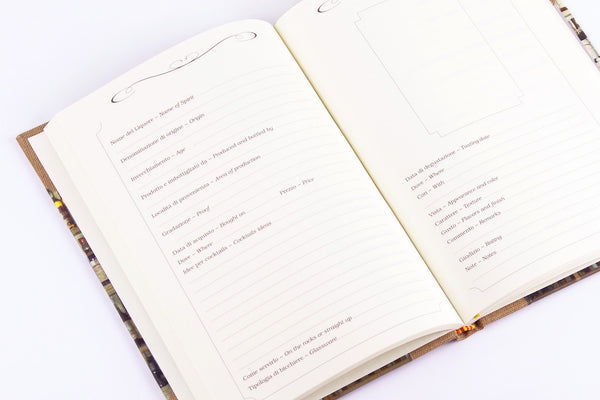 Nome del Liquore – Name of Spirit
Denominazione di origine – Origin
Invecchiamento – Age
Prodotto e imbottigliato da – Produced and bottled by
Località di provenienza – Area of production
Gradazione – Proof
Prezzo – Price
Data di acquisto – Bought on
Dove – Where
Idee per cocktails – Cocktails ideas
Come servirlo – On the rocks or straight up
Tipologia di bicchiere – Glassware
Data di degustazione – Tasting date
Dove – Where
Con – With
Vista – Appearance and color
Carattere – Texture
Gusto – Flavors and finish
Commento – Remarks
Giudizio – Rating
Note – Notes